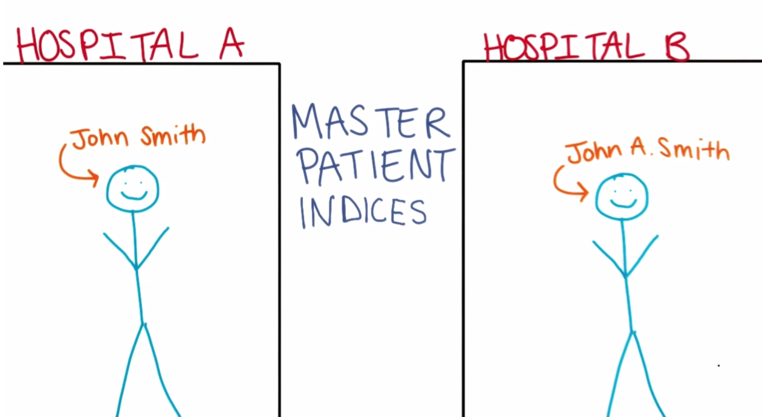 HOSPITAL A
John Smith
MASTER
PATIENT
INDICES
HOSPITAL B
John A. Smith